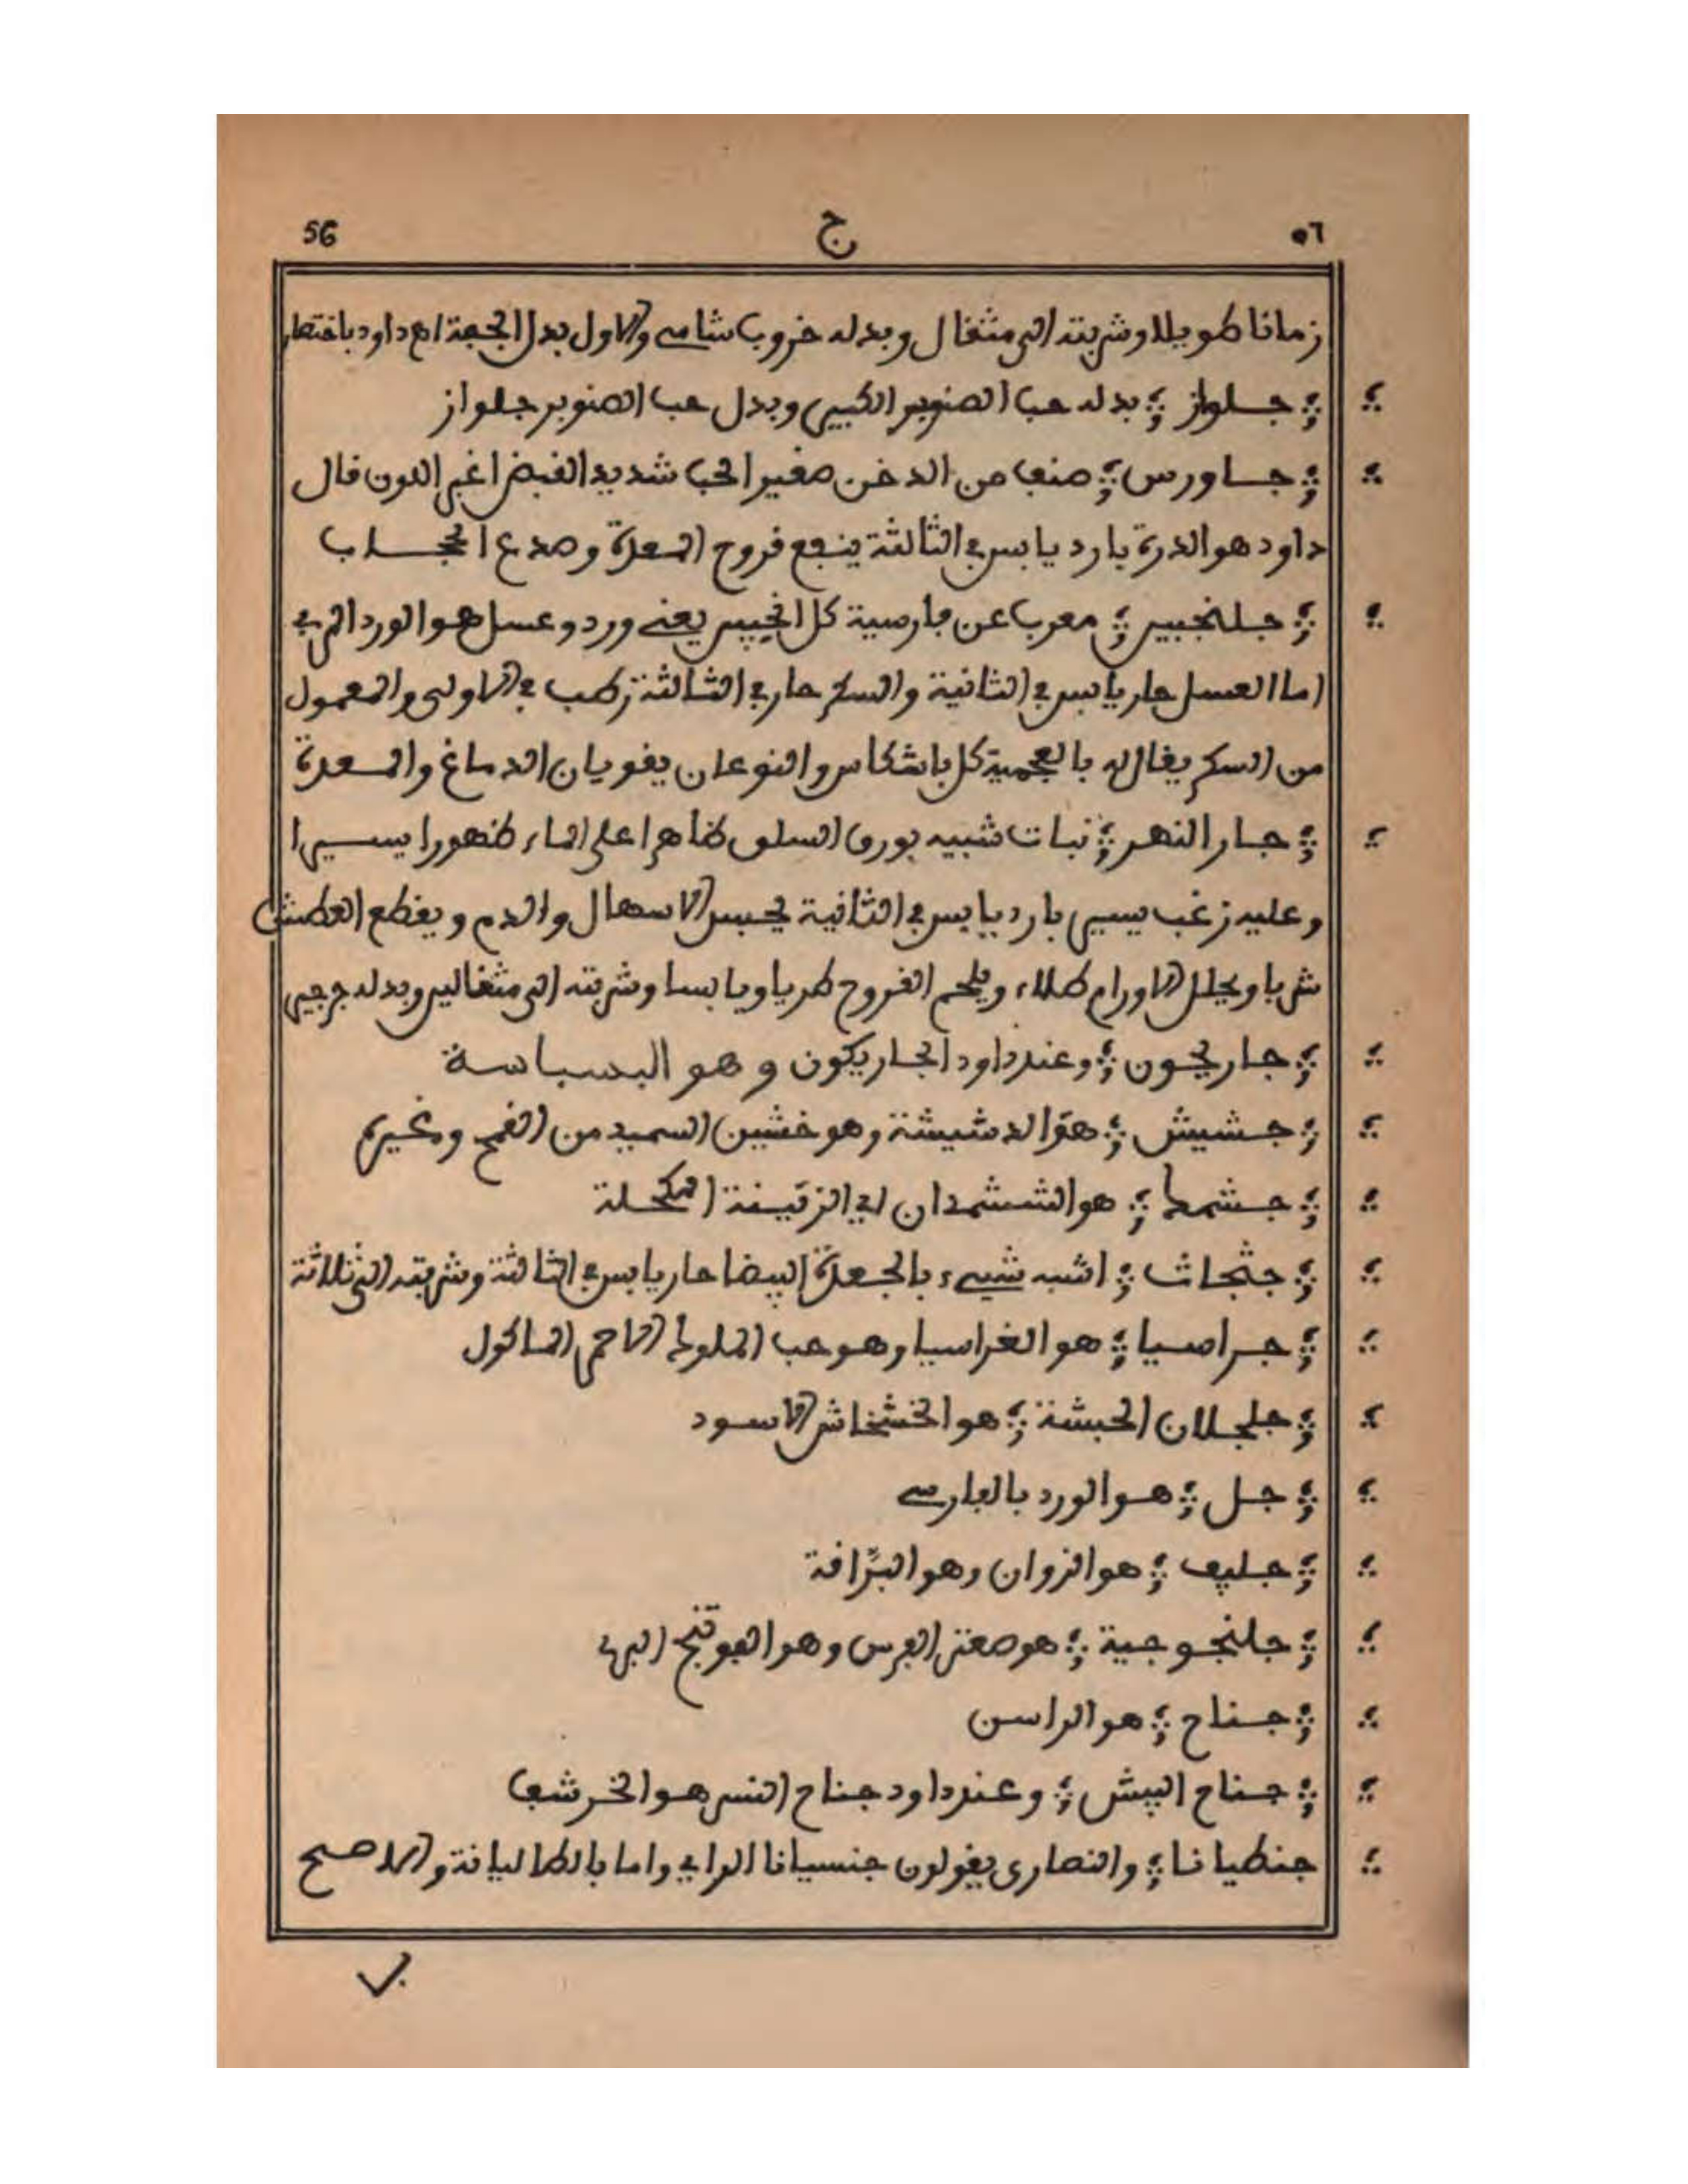 56 ج ٥٦
زمانا طويلا وشربته الى مثقال وبدله خروب شامي والاول بدل الجعدة اهـ داود باختصار
؞ جلواز ؞ بدله حب الصنوبر الكبير وبدل حب الصنوبر جلواز
؞ جاورس ؞ صنف من الدخن صغير الحب شديد القبض اغبر اللون قال
داود هو الذرة بارد يابس في الثالثة ينفع قروح المعدة وصدع الحجاب
؞ جلنجبين ؞ معرب عن فارسية كل انجبين يعني ورد وعسل هو الورد المربى
اما العسل حار يابس في الثانية والسكر حار في الثالثة رطب في الاولى والمعمول
من السكر يقال له بالعجمية كل باشكر والنوعان يقويان الدماغ والمعدة
؞ جار النهر ؞ نبات شبيه بورق السلق ظاهرا على الماء ظهورا يسيرا
وعليه زغب يسير بارد يابس في الثانية يحبس الاسهال والدم ويقطع العطش
شربا ويحلل الاورام طلاء ويلحم القروح طريا ويابسا وشربته الى مثقالين وبدله جرجير
؞ جاريجون ؞ وعند داود الجاريكون وهو البسباسة
؞ جشيش ؞ هو الدشيشة وهو خشين السميد من القمح وغيره
؞ جشمط ؞ هو الششمدان اي الزقيفة المكحلة
؞ جثجاث ؞ اشبه شيء بالجعدة البيضا حار يابس في الثالثة وشربته الى ثلاثة
؞ جراصيا ؞ هو القراسيا وهو حب الملوك الاحمر الماكول
؞ جلجلان الحبشة ؞ هو الخشخاش الاسود
؞ جل ؞ هو الورد بالفارسي
؞ جليف ؞ هو الزوان وهو البزاقة
؞ جلنجوجية ؞ هو صعتر الفرس وهو الفوتنج البري
؞ جناح ؞ هو الراسن
؞ جناح البيش ؞ وعند داود جناح النسر هو الخرشف
جنطيانا ؞ والنصارى يقولون جنسيانا الراي واما بالطاليانة والاصح